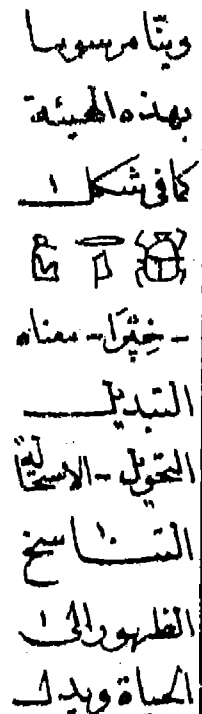 ويتّا مرسوما
بهذه الهيئة
كما فى شكل ١
- خِپْرَا - معناه
التبديل
التحويل - الاستحالة
التناسخ
الظهور الى
الحياة ويدل